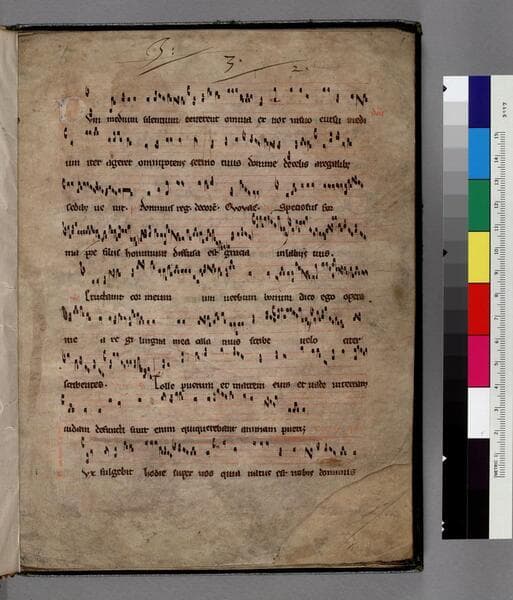 3: 3. 2.
Um medium silentium tenerent omnia et nox in suo cursu medi
um iter ageret omnipotens sermo tuus domine de celis a regalibȝ
sedibȝ ve nit. Dominus reg. decorē. Evovae. Speciosus for
ma pre filiis hominum diffusa est gracia in labiis tuis.
Eructauit cor meum uerbum bonum dico ego opera
me a re gi lingua mea cala mus scribe uelo citer
scribentis. Tolle puerum et matrem eius et uade in terram
iudam defuncti sunt enim qui querebant animam pueri
Ux fulgebit hodie super nos quia natus est nobis dominus